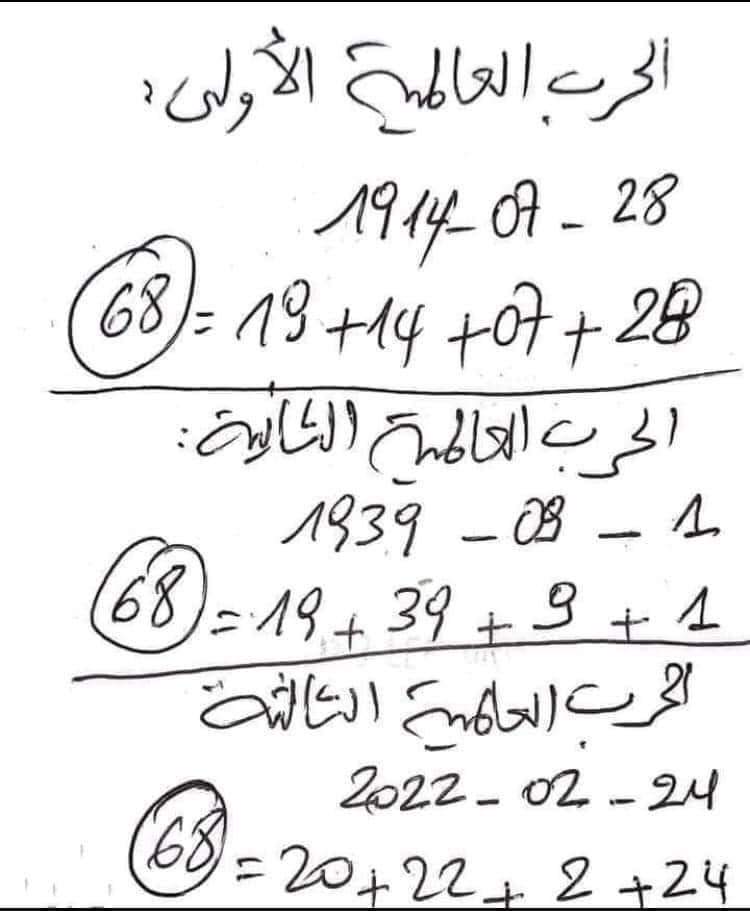 الحرب العالمية الأولى:
1914-07-28
68 = 19+14+07+28
الحرب العالمية الثانية:
1939-09-1
68 = 19+39+9+1
الحرب العالمية الثالثة
2022-02-24
68 = 20+22+2+24